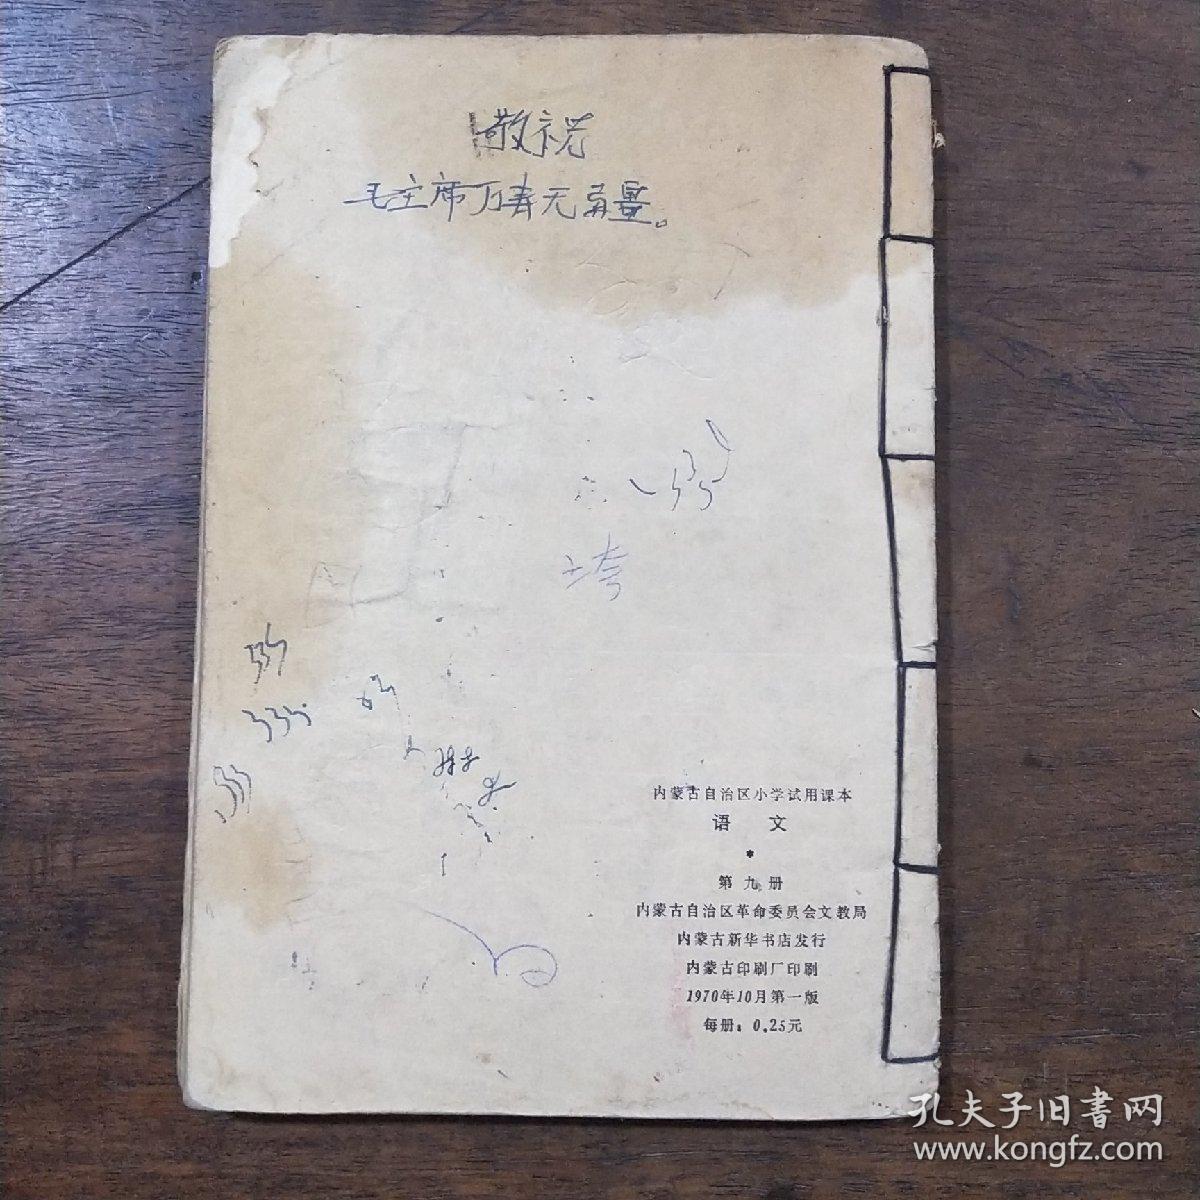 敬祝
毛主席万寿无疆。
垮
内蒙古自治区小学试用课本
语 文
*
第九册
内蒙古自治区革命委员会文教局
内蒙古新华书店发行
内蒙古印刷厂印刷
1970年10月第一版
每册：0.25元
孔夫子旧書网
www.kongfz.com